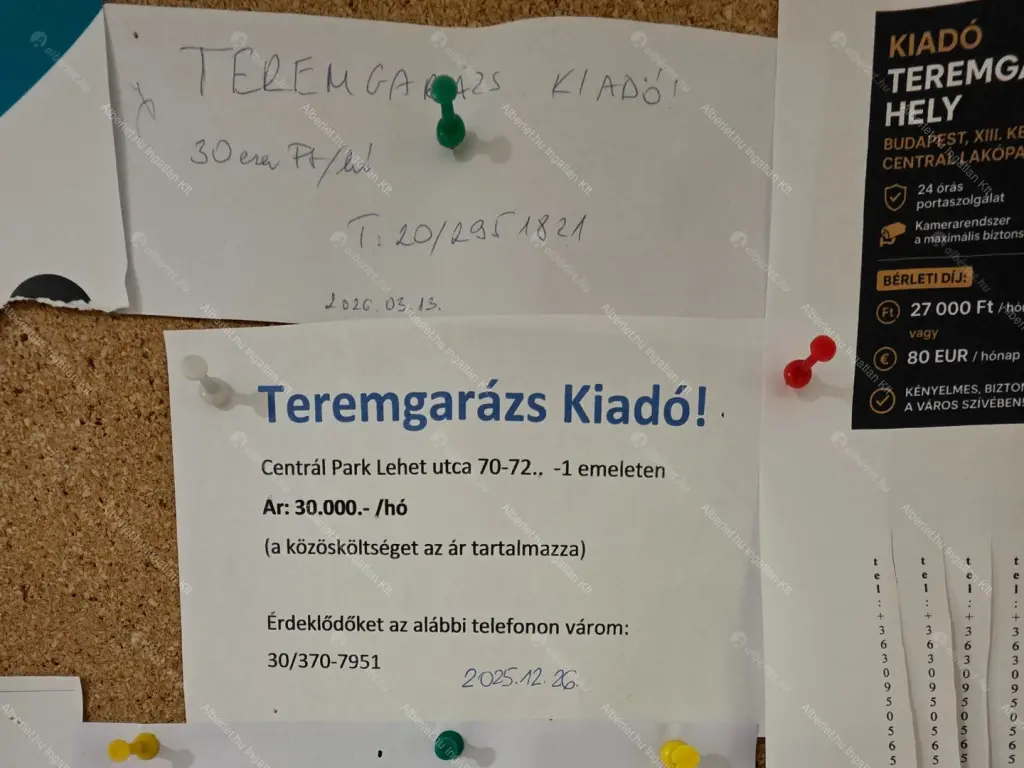 TEREMGARÁZS KIADÓ!
30 ezer Ft/hó
T: 20/295 1821
2026.03.13.
Teremgarázs Kiadó!
Centrál Park Lehet utca 70-72.. -1 emeleten
Ár: 30.000.- /hó
(a közösköltséget az ár tartalmazza)
Érdeklődőket az alábbi telefonon várom:
30/370-7951
2025.12.26.
KIADÓ
TEREMGA
HELY
BUDAPEST, XIII. KE
CENTRÁL LAKÓPA
24 órás
portaszolgálat
Kamerarendszer
a maximális biztons
BÉRLETI DÍJ:
Ft 27 000 Ft /hó
vagy
€ 80 EUR / hónap
KÉNYELMES, BIZTON
A VÁROS SZÍVÉBEN!
tel:+3630950565
tel:+3630950565
tel:+3630950565
tel:+3630950565
Alberlet.hu Ingatlan Kft.